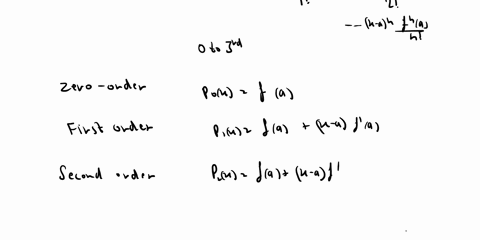 1! 2!
-- (x-a)ⁿ fⁿ(a)/n!
0 to 3rd
Zero-order P₀(x) = f(a)
First order P₁(x) = f(a) + (x-a) f'(a)
Second order P₂(x) = f(a) + (x-a) f'